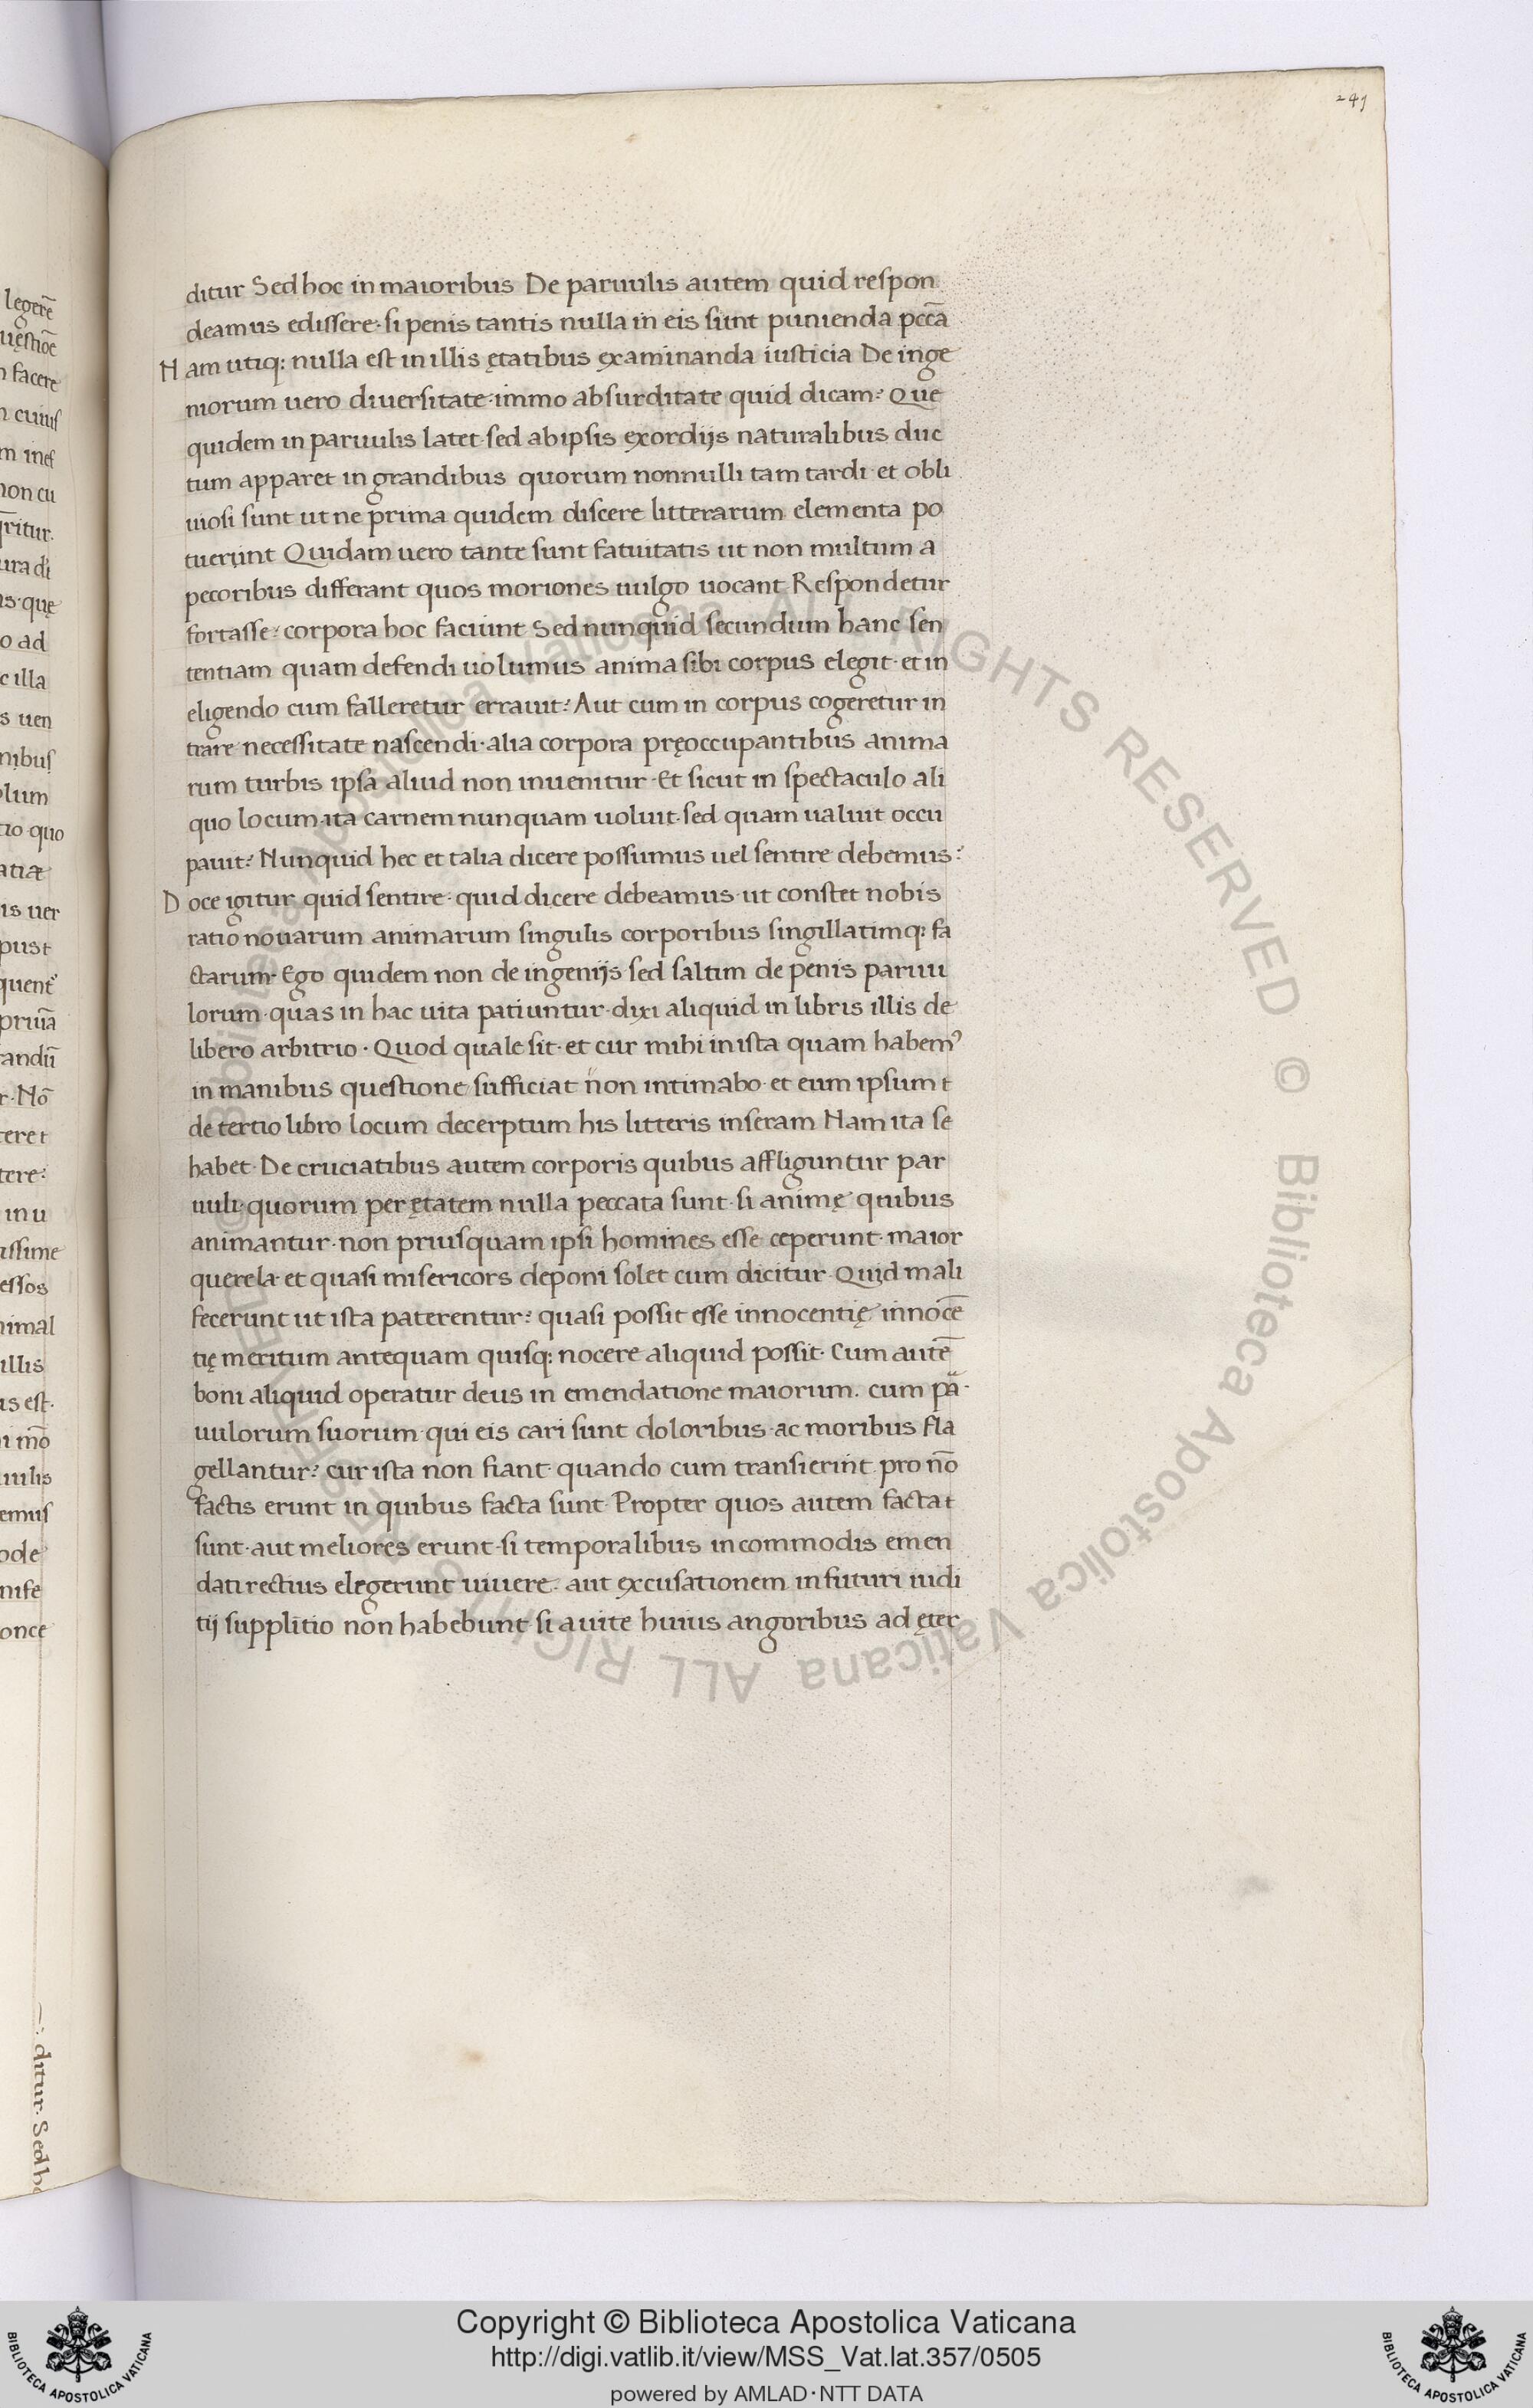 249
ditur Sed hoc in maioribus De paruulis autem quid respon
deamus edissere· si penis tantis nulla in eis sunt punienda pccā
Nam utiq: nulla est in illis ętatibus examinanda iusticia De inge
niorum uero diuersitate· immo absurditate quid dicam? Que
quidem in paruulis latet· sed ab ipsis exordijs naturalibus duc
tum apparet in grandibus quorum nonnulli tam tardi· et obli
uiosi sunt ut ne prima quidem discere litterarum elementa po
tuerunt Quidam uero tante sunt fatuitatis ut non multum a
pecoribus differant quos moriones uulgo uocant Respondetur
fortasse? corpora hoc faciunt Sed nunquid secundum hanc sen
tentiam quam defendi uolumus anima sibi corpus elegit· et in
eligendo cum falleretur errauit? Aut cum in corpus cogeretur in
trare necessitate nascendi· alia corpora pręoccupantibus anima
rum turbis ipsa aliud non inuenitur· Et sicut in spectaculo ali
quo locum ita carnem nunquam uoluit· sed quam ualuit occu
pauit? Nunquid hec et talia dicere possumus uel sentire debemus?
Doce igitur quid sentire· quid dicere debeamus· ut constet nobis
ratio nouarum animarum singulis corporibus singillatimq: fa
ctarum· Ego quidem non de ingenijs· sed saltim de penis paruu
lorum· quas in hac uita patiuntur· dixi aliquid in libris illis de
libero arbitrio· Quod quale sit· et cur mihi in ista quam habem⁹
in manibus questione sufficiat non intimabo· et eum ipsum t
de tertio libro locum decerptum his litteris inseram Nam ita se
habet· De cruciatibus autem corporis quibus affliguntur par
uuli· quorum per ętatem nulla peccata sunt· si animę quibus
animantur· non priusquam ipsi homines esse ceperunt· maior
querela· et quasi misericors deponi solet cum dicitur· Quid mali
fecerunt ut ista paterentur? quasi possit esse innocentię innocē
tię meritum antequam quisq: nocere aliquid possit· Cum autē
boni aliquid operatur deus in emendatione maiorum· cum pa·
uulorum suorum· qui eis cari sunt doloribus· ac moribus fla
gellantur? cur ista non fiant· quando cum transierint· pro nō
factis erunt in quibus facta sunt· Propter quos autem facta t
sunt· aut meliores erunt· si temporalibus incommodis emen
dati rectius elegerunt uiuere· aut excusationem in futuri iudi
tij supplitio non habebunt· si a uite huius angoribus ad ęter
Copyright © Biblioteca Apostolica Vaticana
http://digi.vatlib.it/view/MSS_Vat.lat.357/0505
powered by AMLAD·NTT DATA
BIBLIOTECA APOSTOLICA VATICANA
BIBLIOTECA APOSTOLICA VATICANA